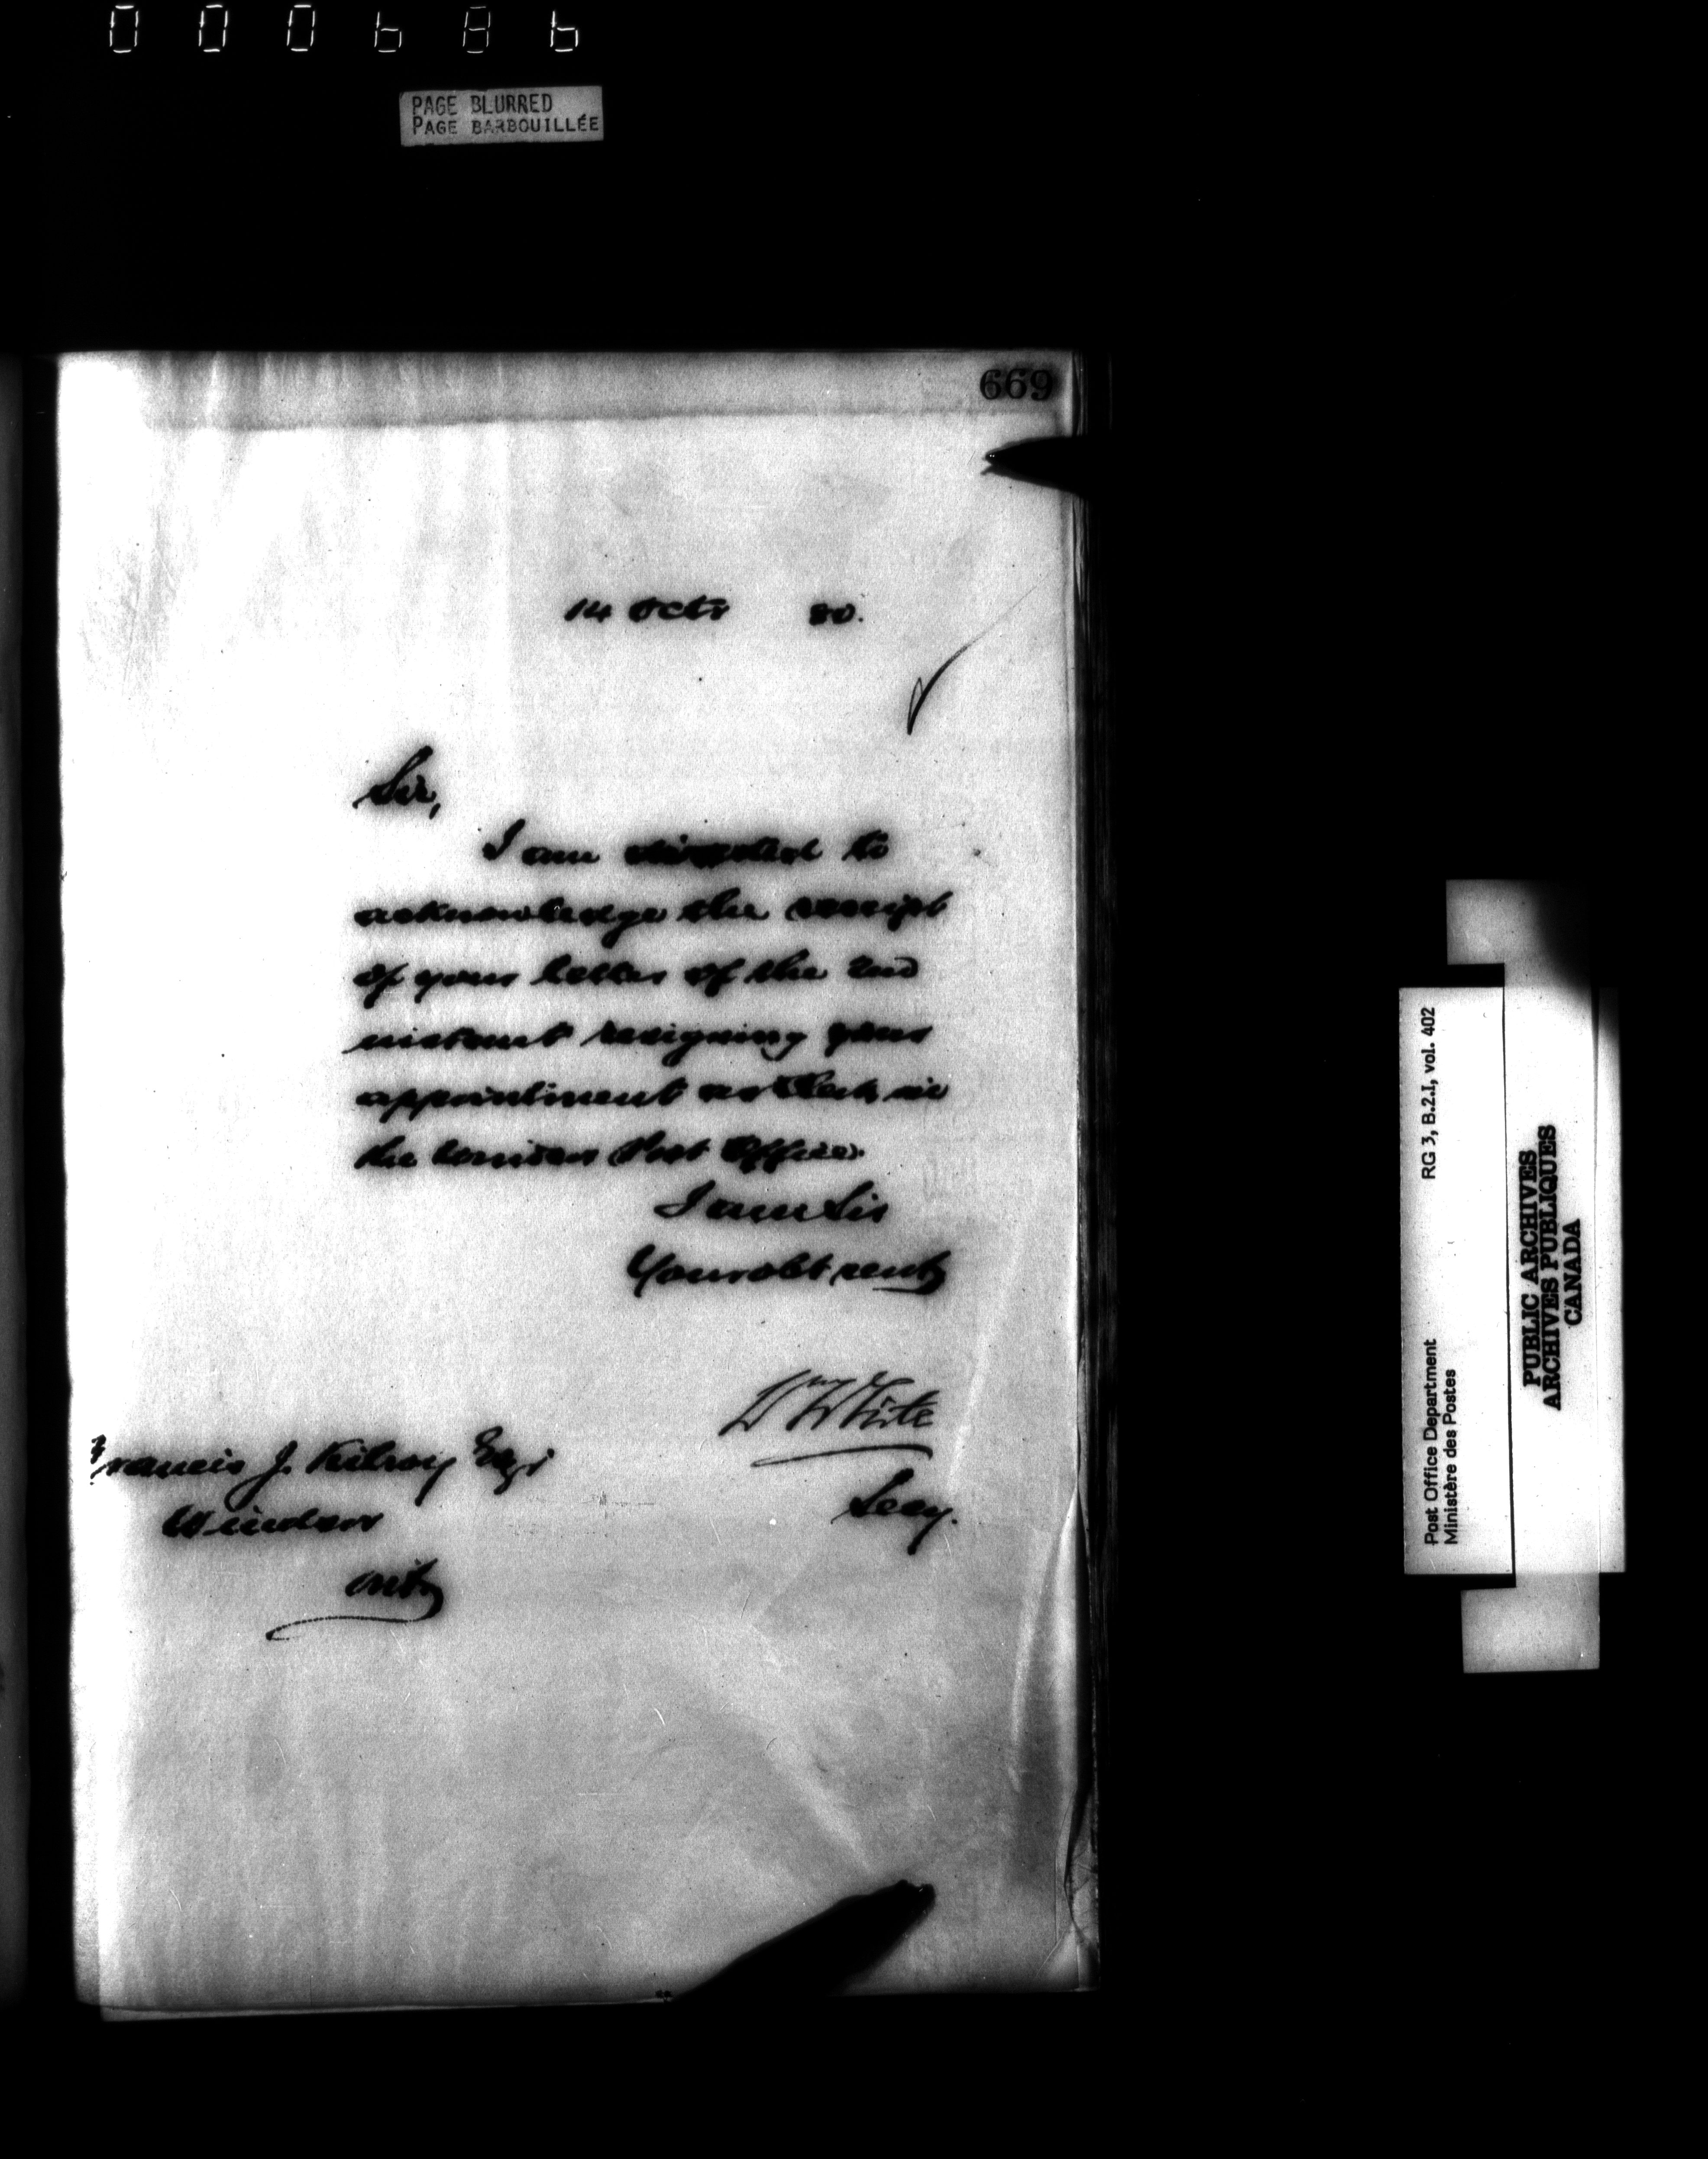 000686
PAGE BLURRED
PAGE BARBOUILLÉE
669
14 Octr 80.
Sir,
I am directed to
acknowledge the receipt
of your letter of the 2nd
instant resigning your
appointment as Clerk in
the Windsor Post Office.
I am Sir
Your obt servt
Wm White
Secy.
Francis J. Kilroy Esqr
Windsor
Ont
RG 3, B.2.I, vol. 402
Post Office Department
Ministère des Postes
PUBLIC ARCHIVES
ARCHIVES PUBLIQUES
CANADA